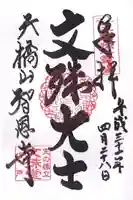 奉拝
平成三十一年
四月二十八日
文殊大士
天橋山智恩寺